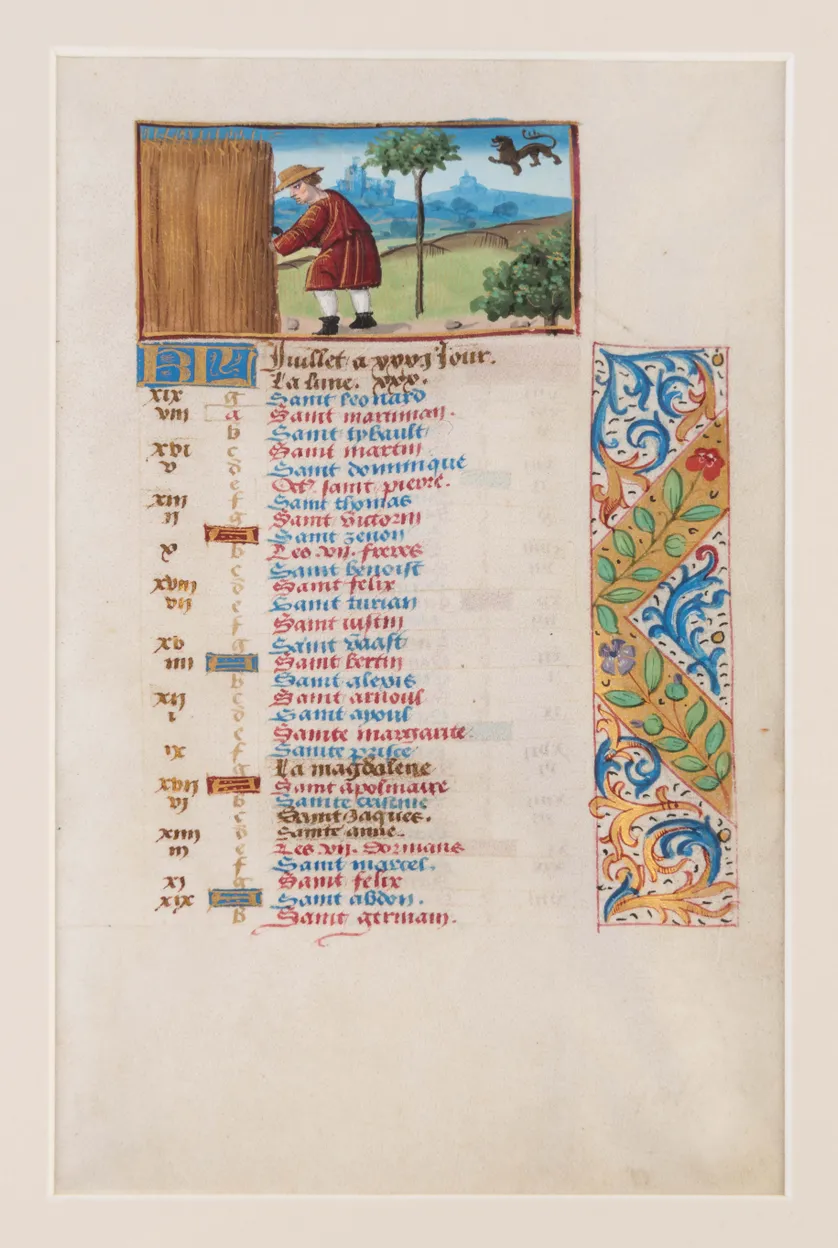 KL Juillet a xxxj Jour.
La lune. xxx.
xix g Saint leonard
viii a Saint martinian.
b Saint tybault
xvi c Saint martin
v d Saint dominique
e Oct. saint pierre.
xiii f Saint thomas
ii g Saint victorin
Saint zenon
x b Les vii. freres
c Saint benoist
xviii d Saint felix
vii e Saint turian
f Saint iustin
xv g Saint vaast
iiii Saint bertin
b Saint alexis
xii c Saint arnoul
i d Saint apoul
e Sainte margarite.
ix f Sainte prisce
g La magdalene
xvii Saint apolinaire
vi b Sainte cristine
c Saint Jaques.
xiiii d Sainte anne.
iii e Les vii. dormans
f Saint marcel.
xi g Saint felix
xix Saint abdon.
b Saint germain.